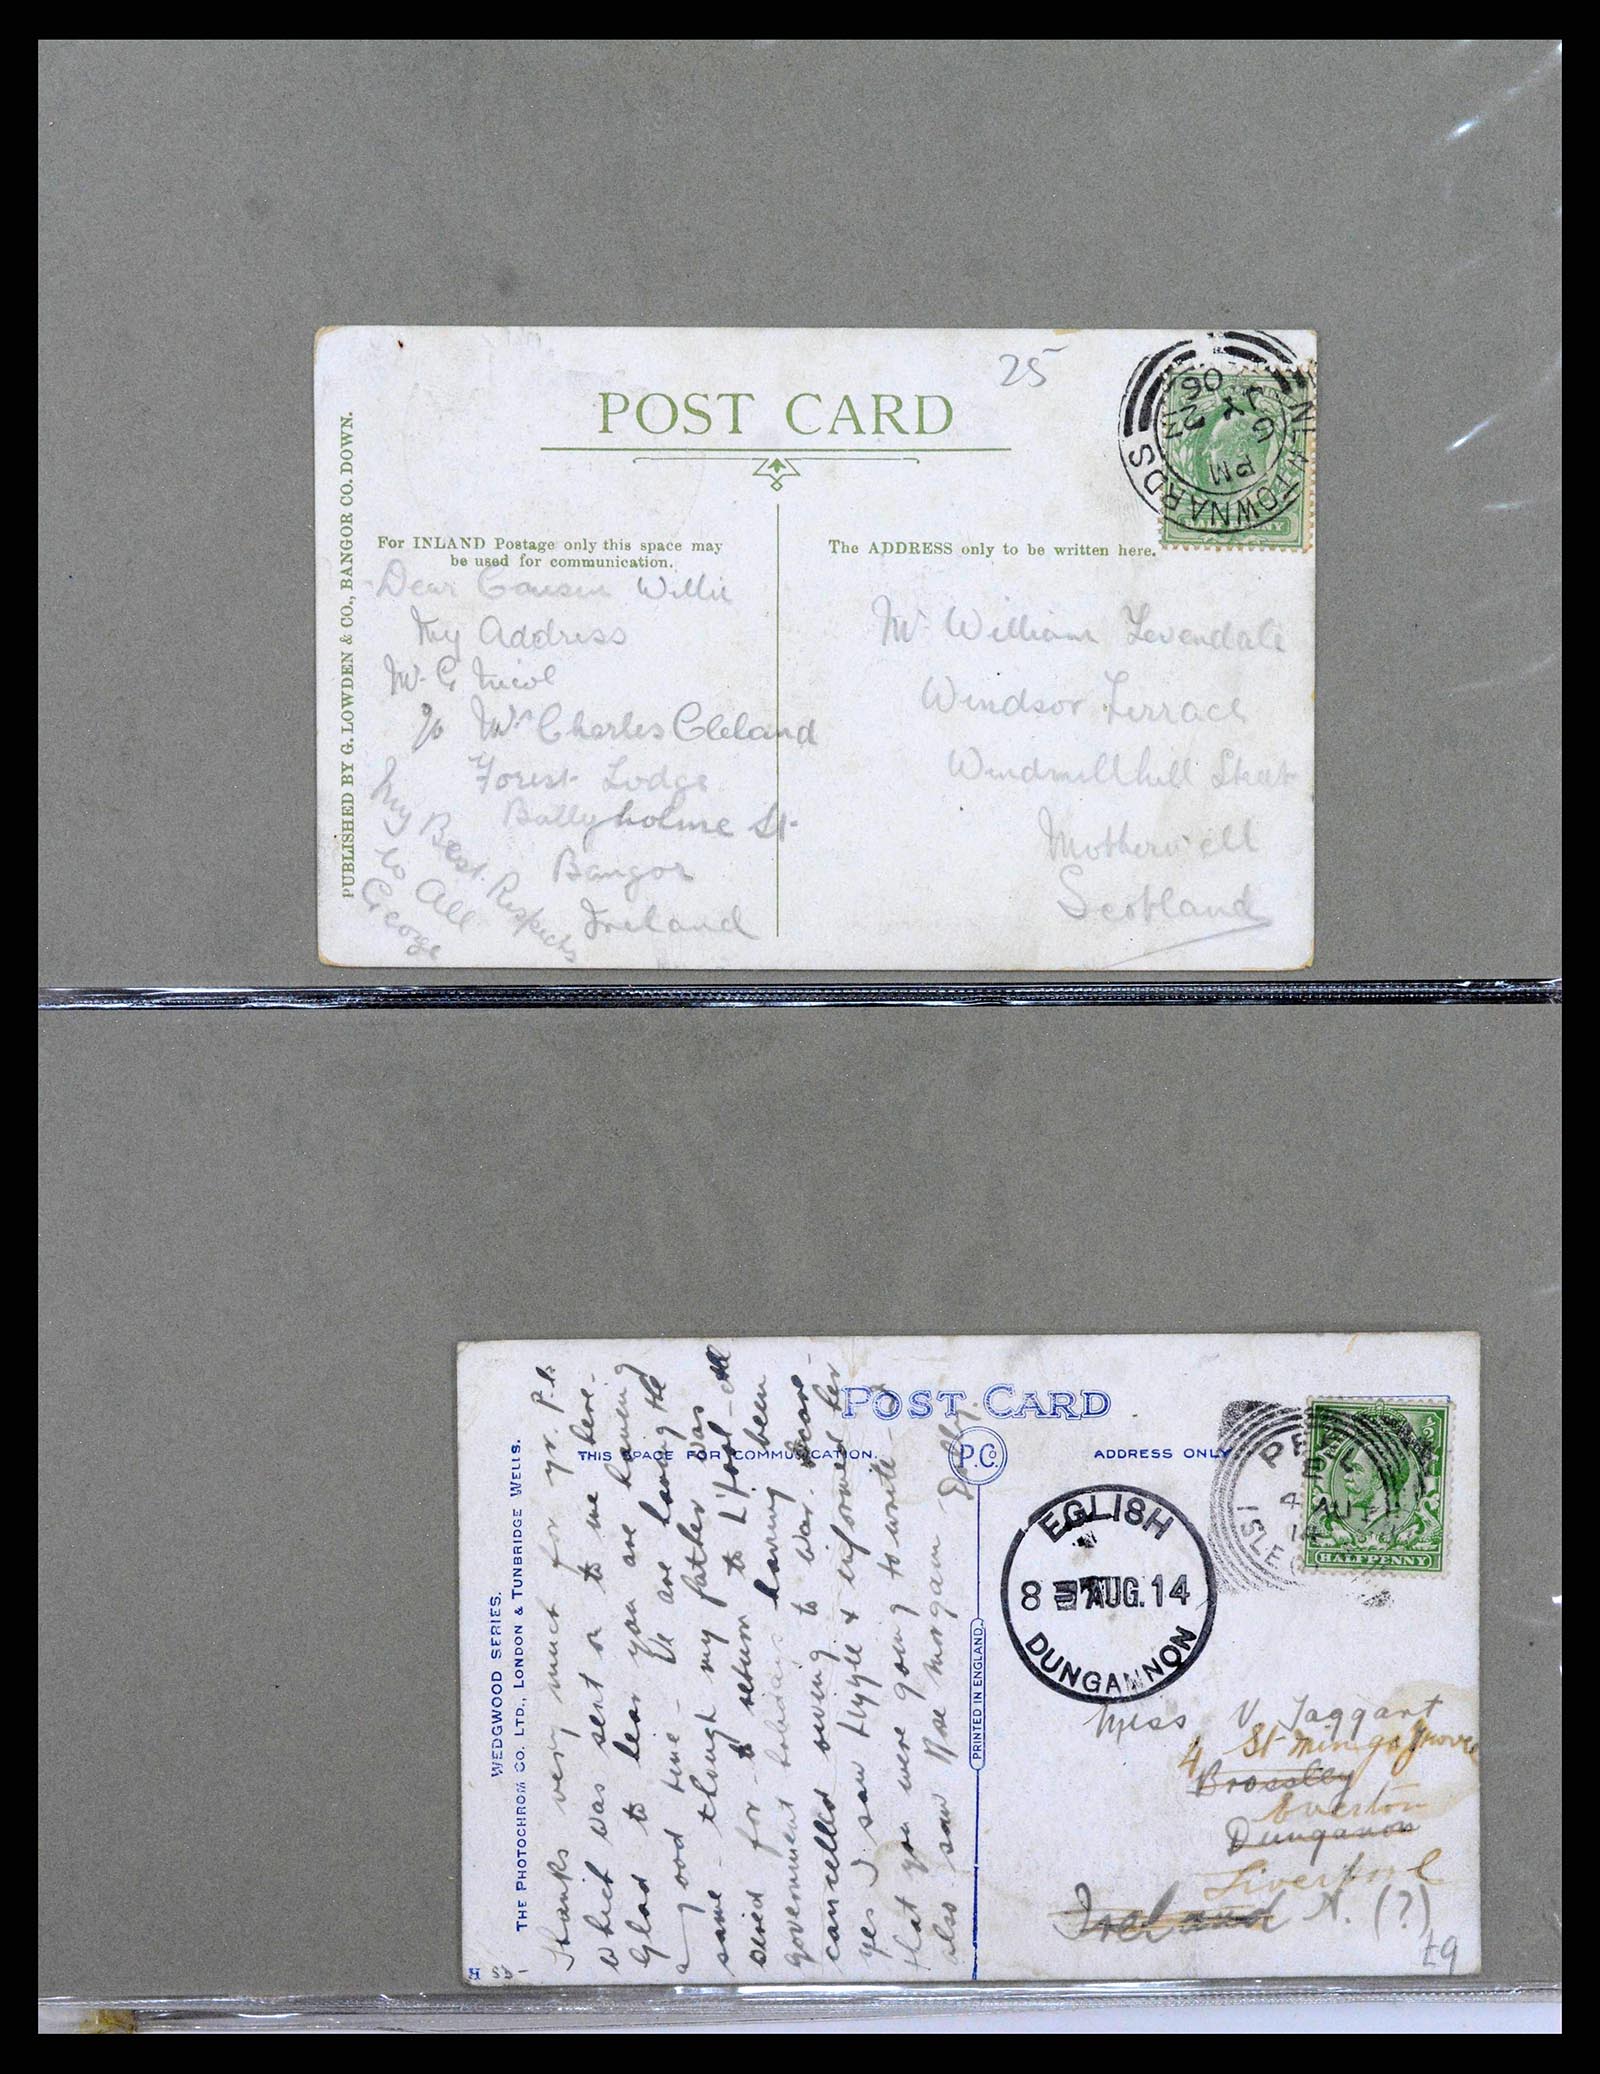 25
POST CARD
NEWTOWNARDS
PM
JY 23
06
PUBLISHED BY G. LOWDEN & CO., BANGOR CO. DOWN.
For INLAND Postage only this space may
be used for communication.
The ADDRESS only to be written here.
HALFPENNY
Dear Cousin Willie
My Address
Mr. G Nicol
c/o Mrs Charles Cleland
Forest Lodge
Ballyholme St.
Bangor
Ireland
My Best Respects
to All
George
Mr William
Windsor Terrace
Windmillhill Street
Motherwell
Scotland
POST CARD
THIS SPACE FOR COMMUNICATION.
P.C.
ADDRESS ONLY
WEDGWOOD SERIES.
THE PHOTOCHROM CO. LTD., LONDON & TUNBRIDGE WELLS.
PRINTED IN ENGLAND.
PEEL
4 AU
14
ISLE O
HALFPENNY
EGLISH
8 AUG. 14
DUNGANNON
Thanks very much for yr. P.c.
which was sent on to me here.
Glad to hear you are having
a good time - We are having the
same - though my father was
wired for to return to L'pool - all
government holidays having been
cancelled owing to war. scare -
yes I saw & informed her
that you were going to write -
also saw Rose morgan Dolly.
Miss V Taggart
4 St Mingo Grove
Brossley
Everton
Dunganon
Liverpool
Ireland N. (?)
£9